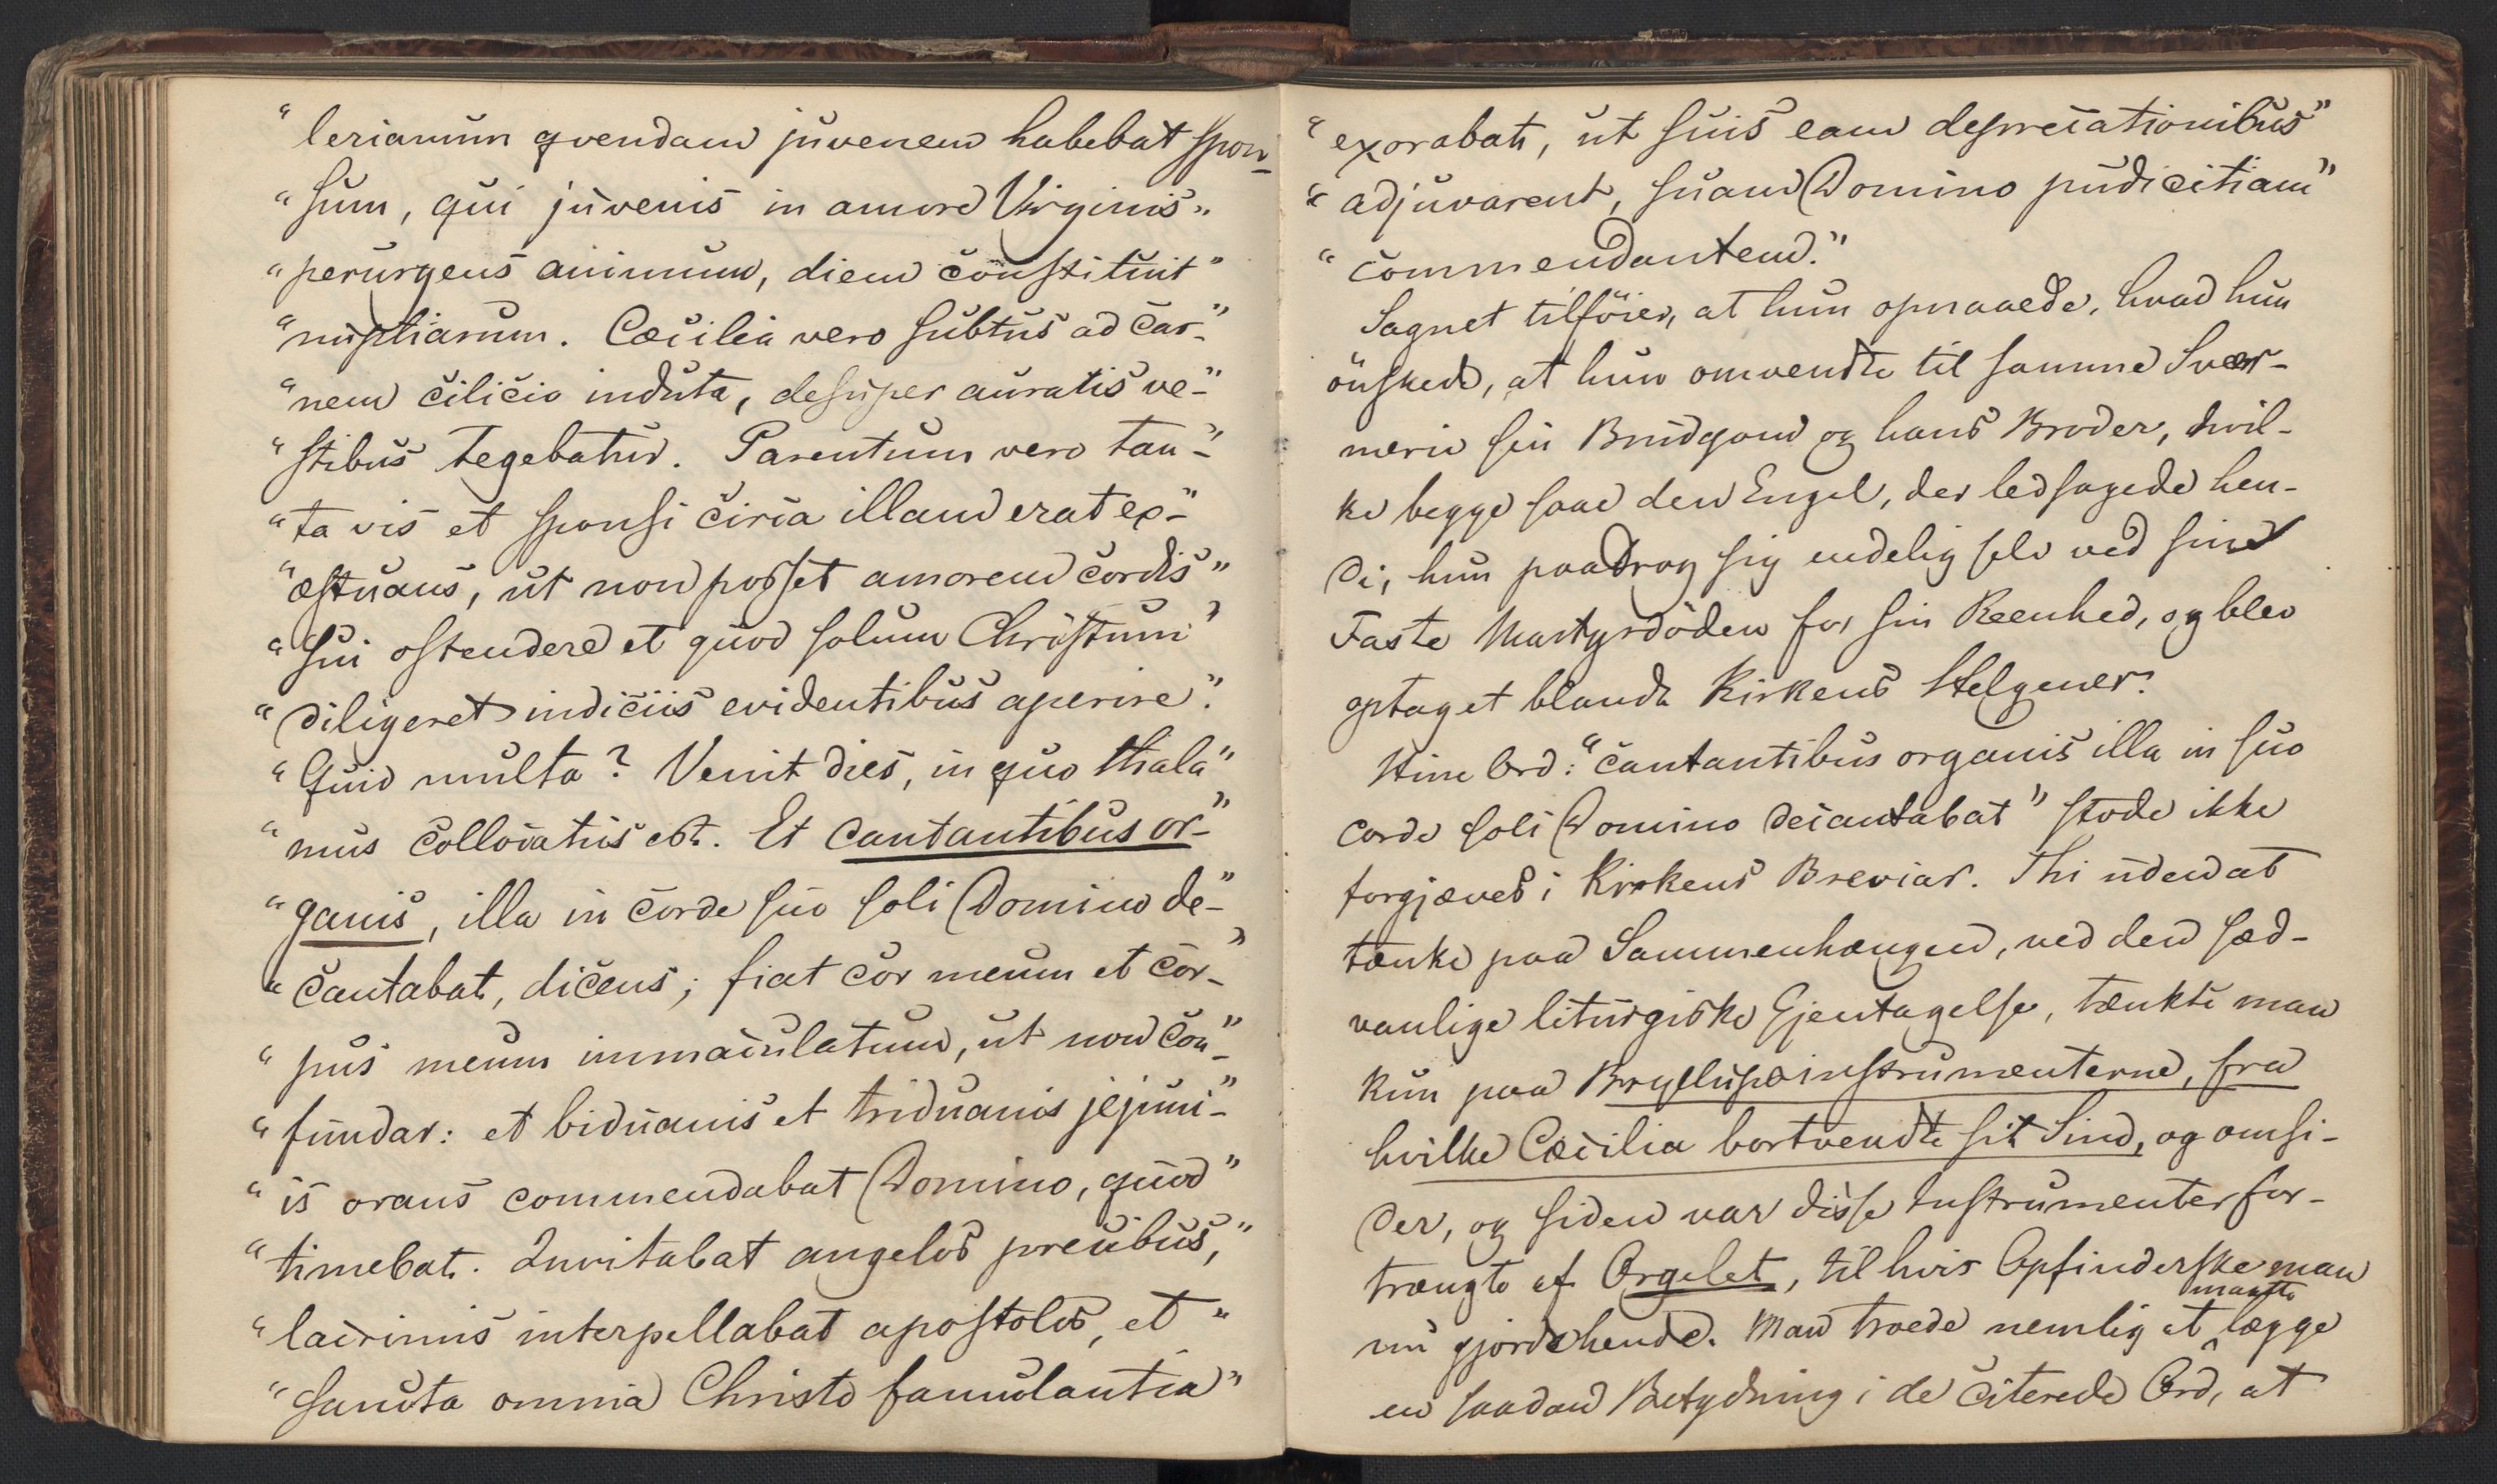 "lerianum qvendam juvenem habebat spon-
"sum, qui juvenis in amore Virginis"
"perurgens animum, diem constituit"
"nuptiarum. Cæcilia vero subtus ad car-"
"nem cilicio induta, desuper auratis ve-"
"stibus tegebatur. Parentum vero tan-"
"ta vis et sponsi circa illam erat ex-"
"æstuans, ut non posset amorem cordis"
"sui ostendere et quod solum Christum"
"diligeret indiciis evidentibus aperire".
"Quid multa? Venit dies, in quo thala"
"mus collocatus est. Et cantantibus or-"
"ganis, illa in corde suo soli Domino de-"
"cantabat, dicens; fiat cor meum et cor-"
"pus meum immaculatum, ut non con-"
"fundar: et biduanis et triduanis jejuni-"
"is orans commendabat Domino, quod"
"timebat. Invitabat angelos precibus,"
"lacrimis interpellabat apostolos, et"
"sancta omnia Christo famulantia"
"exorabat, ut suis eam deprecationibus"
"adjuvarent, suam Domino pudicitiam"
"commendantem."
Sagnet tilföier, at hun opnaaede, hvad hun
önskede, at hun omvendte til samme Svær-
merie sin Brudgom og hans Broder, hvil-
ke begge saae den Engel, der ledsagede hen-
de; hun paadrog sig endelig selv ved sine
Faste Martyrdöden for sin Reenhed, og blev
optaget blandt Kirkens Helgener.
Hine Ord: "cantantibus organis illa in suo
corde soli Domino decantabat" stode ikke
forgjæves i Kirkens Breviar. Thi uden at
tænke paa Sammenhængen, ved den sæd-
vanlige liturgiske Gjentagelse, tænkte man
kun paa Bryllupsinstrumenterne, fra
hvilke Cæcilia bortvendte sit Sind, og omsi-
der, og siden var disse Instrumenter for-
trængte af Orgelet, til hvis Opfinderske man
nu gjorde hende. Man troede nemlig at maatte lægge
en saadan Betydning i de citerede Ord, at